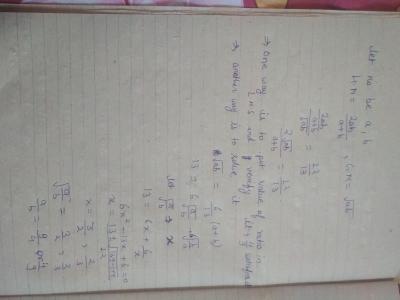 let no be a, b
H.M = 2ab/(a+b), G.M = √ab
(2ab/(a+b))/√ab = 12/13
2√ab/(a+b) = 12/13
→ One way is to put value of ratio in
L.H.S and verify
→ another way is to solve it
√ab = 6/13 (a+b)
13 = 6(√a/b + √b/a)
let √a/b → x
13 = 6x + 6/x
6x² - 13x + 6 = 0
x = 3/2, 2/3
√a/b = 3/2, 2/3
a/b = 9/4 or 4/9